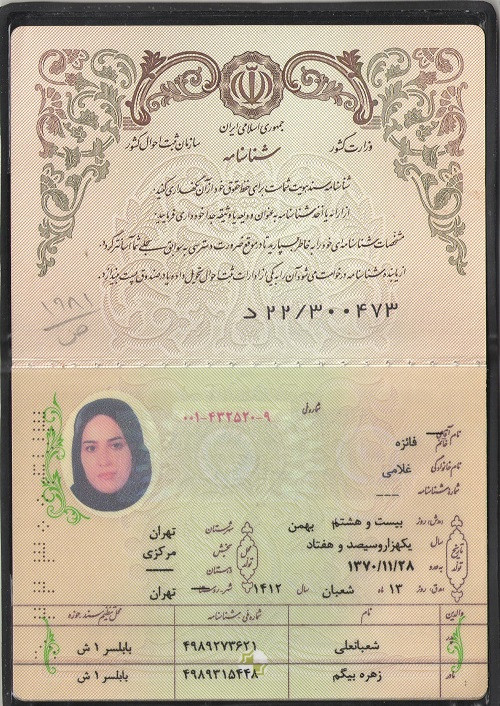 جمهوری اسلامی ایران
وزارت کشور
سازمان ثبت احوال کشور
شناسنامه
شناسنامه سند هویت شماست برای حفظ حقوق خود از آن نگهداری کنید.
از ارائه یا اخذ شناسنامه به عنوان ودیعه یا وثیقه جداً خودداری فرمایید.
مشخصات شناسنامه‌ی خود را به خاطر بسپارید تا در موقع ضرورت دسترسی به سوابق سجلی شما آسانتر گردد.
از یابنده شناسنامه درخواست می‌شود آن را به یکی از ادارات ثبت احوال تحویل داده یا در صندوق پست بیندازد.
۱۹۸۱
ص
د ۲۲/۳۰۰۴۷۳
شماره ملی ۰۰۱-۴۳۲۵۲۰-۹
نام آقای خانم فائزه
نام خانوادگی غلامی
شماره شناسنامه ---
تاریخ تولد
روش: روز بیست و هشتم بهمن
سال یکهزاروسیصد و هفتاد
۱۳۷۰/۱۱/۲۸
روز ۱۳ ماه شعبان سال ۱۴۱۲
محل تولد
شهرستان تهران
بخش مرکزی
دهستان ---
شهر روستا تهران
والدین نام شماره ملی شناسنامه محل تنظیم سند حوزه
پدر شعبانعلی ۴۹۸۹۲۷۳۶۲۱ بابلسر ۱ ش
مادر زهره بیگم ۴۹۸۹۳۱۵۴۴۸ بابلسر ۱ ش